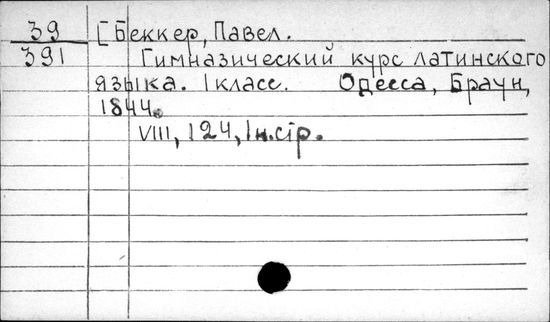 39 [Беккер, Павел.
391 Гимназический курс латинского
языка. I класс. Одесса, Браун,
1844.
VIII, 124, I н.стр.